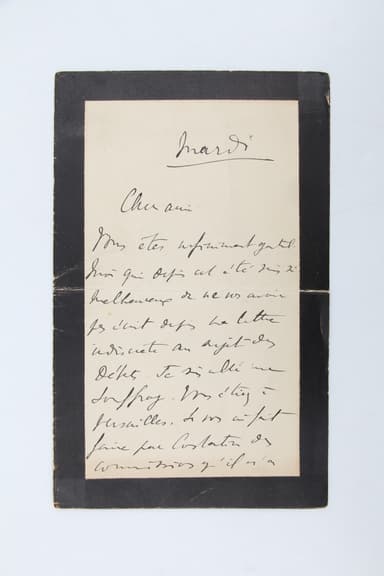 Mardi
Cher ami
Vous êtes infiniment gentil.
Moi qui depuis cet été suis si
malheureux de ne vous avoir
pas écrit depuis ma lettre
indiscrète au sujet des
Débats. Je suis allé rue
Vous étiez à
Versailles. Je vous ai fait
faire par Constantin des
commissions qu'il n'a